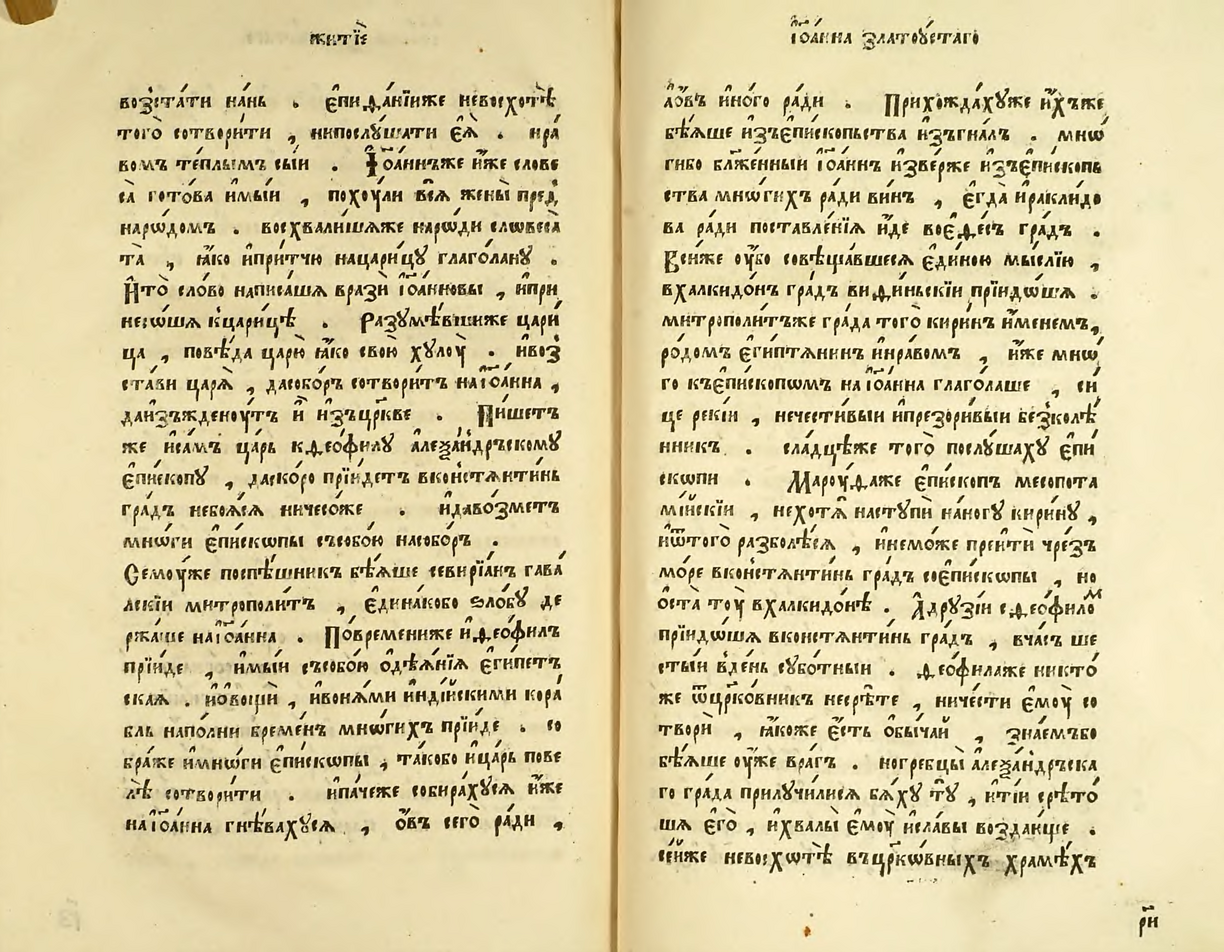 житїѐ
возста́ти на́нь . є҆пиѳа́нїйже невосхотѣ̀
того̀ сотвори́ти , нипослꙋ́шати єѧ̀ . нра́
вомъ те́плымъ сы́и . І҆оа́ннъже и҆́же слове
са̀ гото́ва и҆мы́и , похоулѝ всѧ̀ жены̀ пред̾
наро́домъ . восхвали́шѧже наро́ди словеса̀
та̀ , ꙗ҆́ко и҆при́тчю нацари́цꙋ глаго́ланꙋ .
И҆то̀ сло́во написа́шѧ вразѝ і҆оа́нновы , и҆при
несо́шѧ кцари́цѣ . Разꙋмѣ́вшиже цари́
ца , повѣ́да царю̀ ꙗ҆́ко свою̀ хꙋлоу̀ . и҆воз̾
ста́ви царѧ̀ , дасобо́ръ сотвори́тъ наі҆оа́нна ,
даи҆зъждену́тъ и҆̀ и҆зъцр҃кве . Пи́шетъ
же и҆са́мъ ца́рь кѳео́филꙋ алеѯа́ндръскомꙋ
є҆пи́скопꙋ , даско́ро прїи́детъ вконстѧнти́нь
гра́дъ небоѧ́сѧ ничесо́же . и҆давозме́тъ
мно́ги є҆пи́скопы съсобо́ю насобо́ръ .
Семоу́же поспѣ́шникъ бѣ́ѧше севирїа́нъ гава́
лскїи митрополи́тъ , є҆дина́ково ѕло́бꙋ де
ржа́ше наі҆оа́нна . Повре́мениже и҆ѳео́филъ
прїи́де , и҆мы́и съсобо́ю ѻ҆дѣѧ́нїѧ є҆ги́петъ
скаѧ . и҆ово́щїи , и҆воня́ми и҆нді́йскими кора́
бль напо́лни бре́менъ мно́гихъ прїи́де . со
бра́же и҆мно́ги є҆пи́скопы , та́кобо и҆ца́рь пове
лѣ̀ сотвори́ти . и҆па́чеже собира́хꙋсѧ и҆́же
наі҆оа́нна гнѣ́вахꙋсѧ , ѻ҆́въ сего̀ ра́ди ,
і҆оа́нна златоꙋ́стаго
ѻ҆́въ и҆но́го ра́ди . Прихожда́хꙋже и҆̀хъже
бѣ́ѧше и҆зъє҆пи́скопьства и҆зъгна́лъ . мно́
гибо бл҃же́нныи і҆оа́ннъ и҆зве́рже и҆зъє҆пи́скопь
ства мно́гихъ ра́ди ви́нъ , є҆гда̀ и҆ракли́до
ва ра́ди поставле́нїѧ и҆́де воє҆ѳе́съ гра́дъ .
Всиже оу҆̀бо совѣща́вшесѧ є҆ди́ною мы́слїю ,
вхалкидо́нъ гра́дъ виѳи́ньскїи прїидо́шѧ .
митрополи́тъже гра́да того̀ кири́нъ и҆́менемъ ,
ро́домъ є҆гиптѧ́нинъ и҆нра́вомъ , и҆́же мно́
го къє҆пи́скопомъ наі҆оа́нна глаго́лаше , си́
це реки́и , нечести́выи и҆презори́выи без̾колѣ́
нникъ . сладцѣ́же того̀ послꙋ́шахꙋ є҆пи́
скопи . Мароуѳа́же є҆пи́скопъ месопота
мі́йскїи , нехотѧ̀ настꙋпѝ на́ногꙋ кири́нꙋ ,
и҆ѿтого̀ разболѣ́сѧ , и҆немо́же преитѝ чре́зъ
мо́ре вконстѧнти́нь гра́дъ соє҆пи́скопы , но
ѻ҆ста̀ тоу̀ вхалкидо́нѣ . А҆дрꙋзі́и сѳео́фило́м
прїидо́шѧ вконстѧнти́нь гра́дъ , вча́съ ше
сты́и вде́нь сꙋбо́тныи . ѳео́филаже никто́
же ѿцр҃ко́вникъ несрѣ́те , ничестѝ є҆моу̀ со
творѝ , ꙗ҆́коже є҆́сть ѻ҆бы́чай , зна́емъбо
бѣ́ѧше оу҆́же вра́гъ . ногребцы̀ алеѯа́ндръска
го гра́да прилꙋчи́лисѧ бѧ́хꙋ тꙋ̀ , и҆ті́и срѣ́то
шѧ є҆го̀ , и҆хвалы̀ є҆моу̀ и҆сла́вы возда́юще .
се́йже невосхотѣ̀ въцр҃ко́вныхъ хра́мѣхъ
рн҃